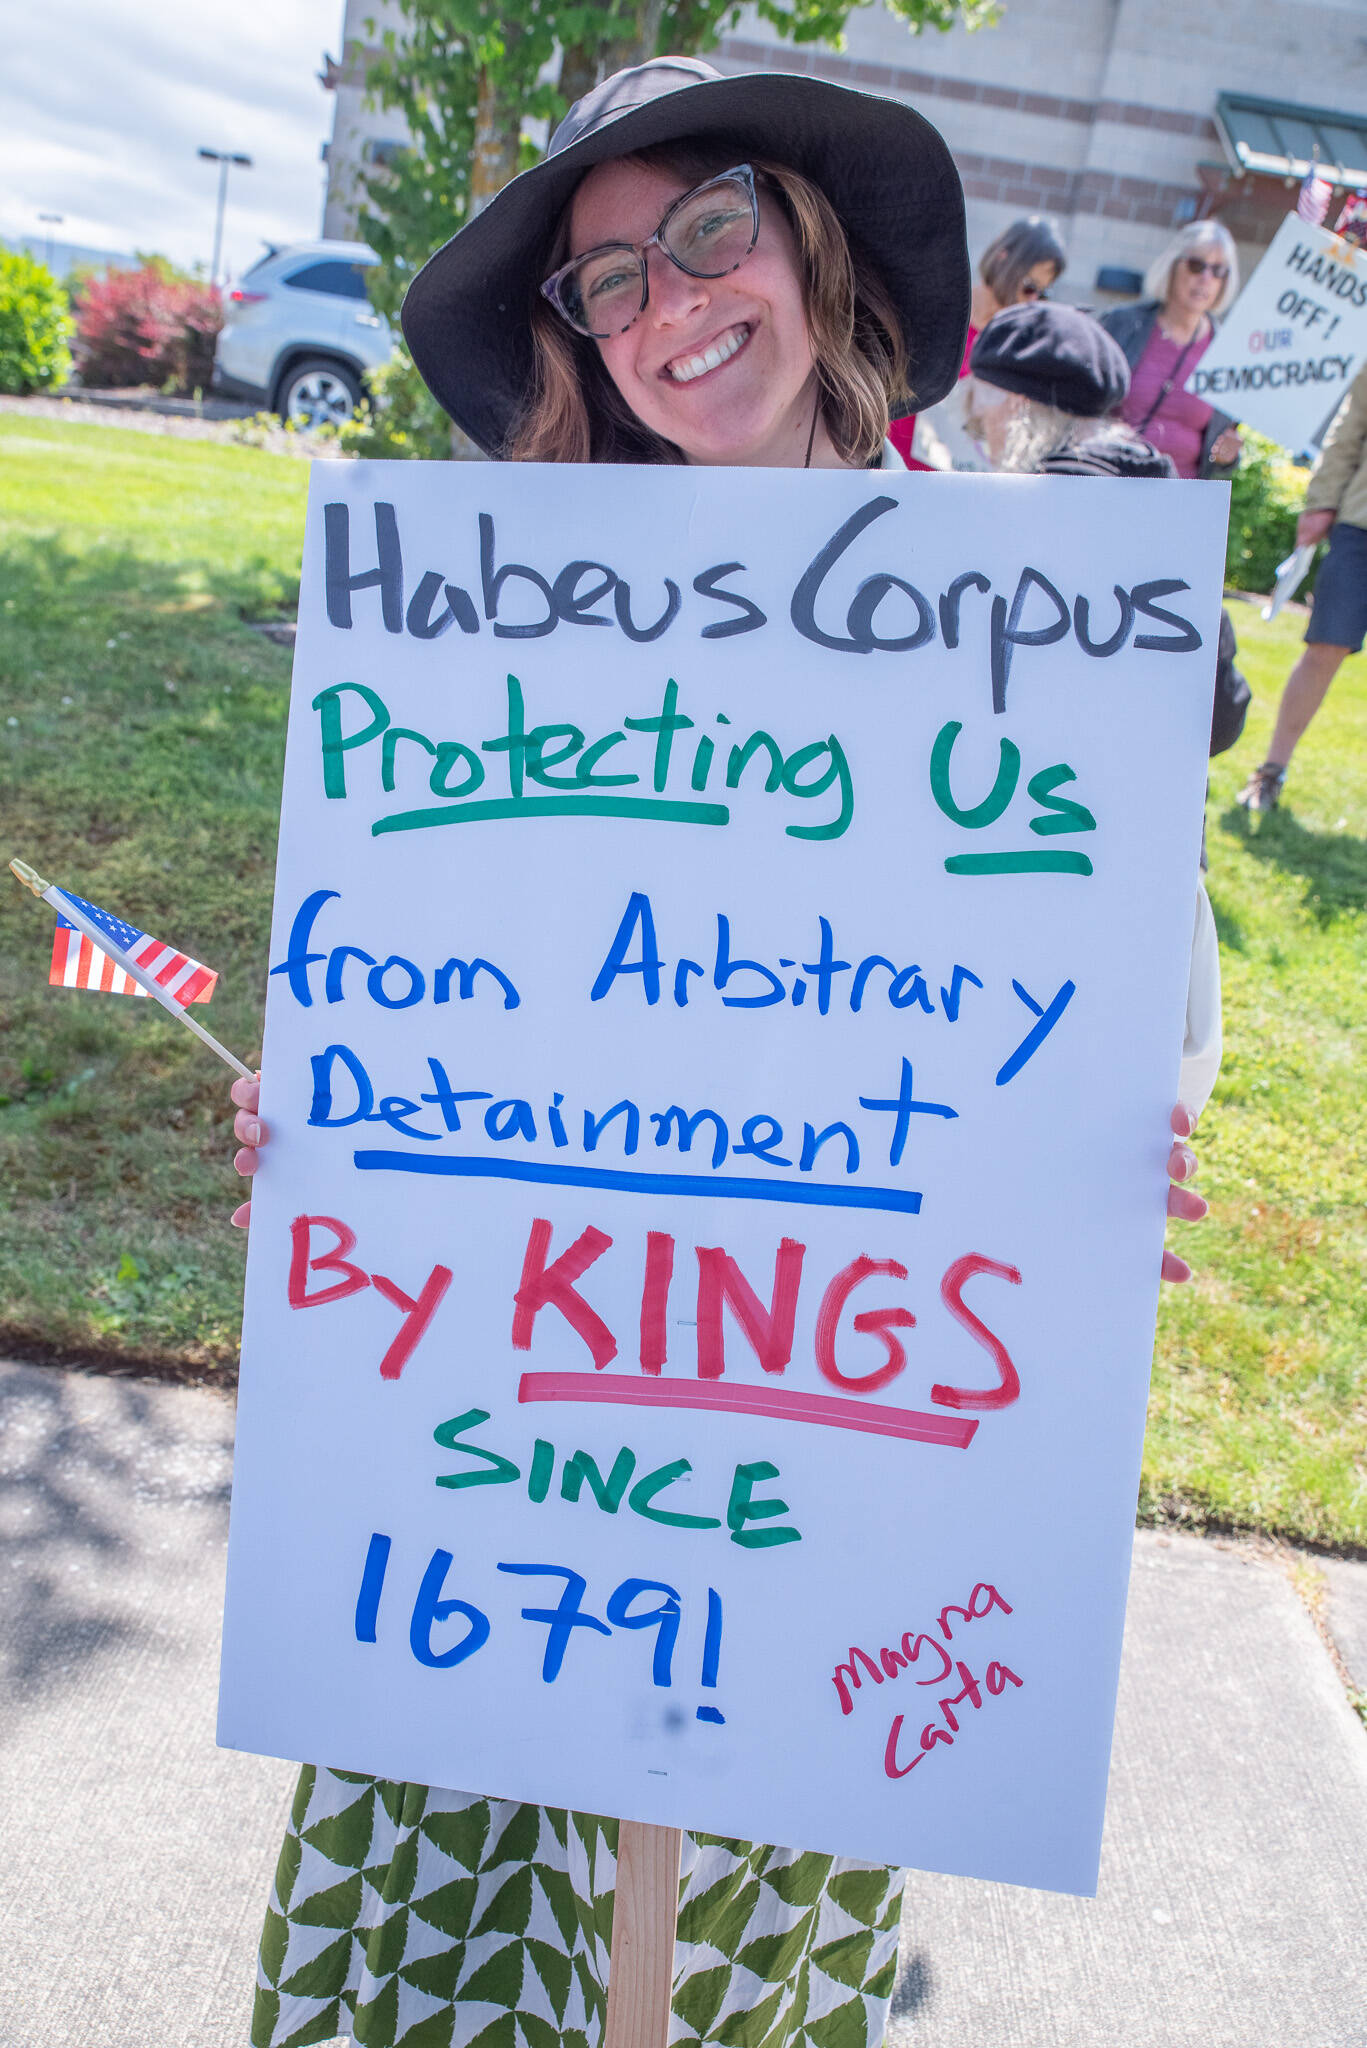 Habeus Corpus
Protecting Us
from Arbitrary
Detainment
By KINGS
SINCE
1679!
Magna
Carta
HANDS
OFF!
OUR
DEMOCRACY